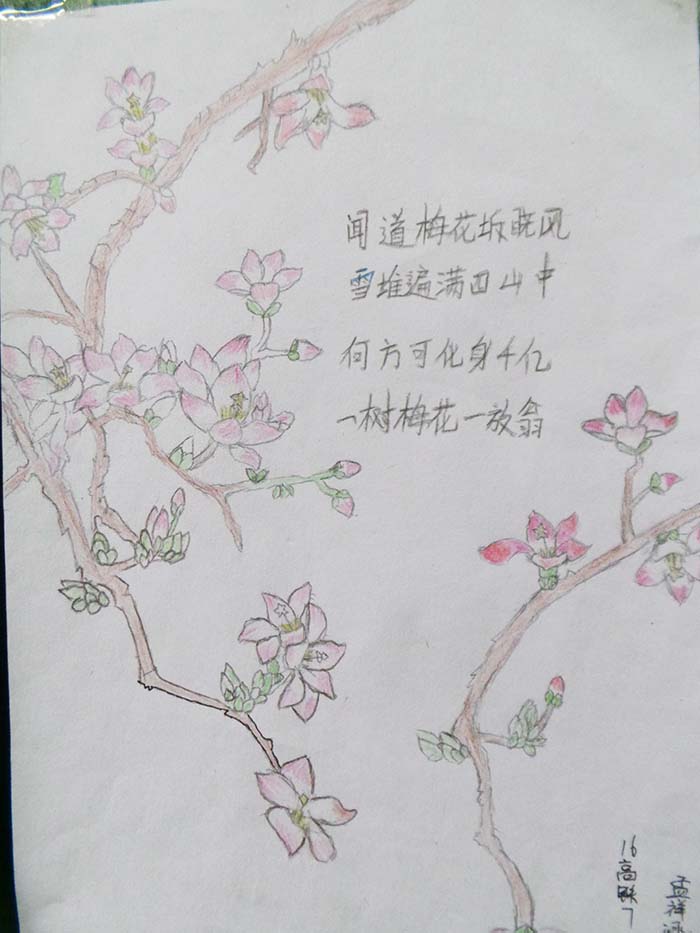 闻道梅花坼晓风
雪堆遍满四山中
何方可化身千亿
一树梅花一放翁
16高联7
孟祥涵